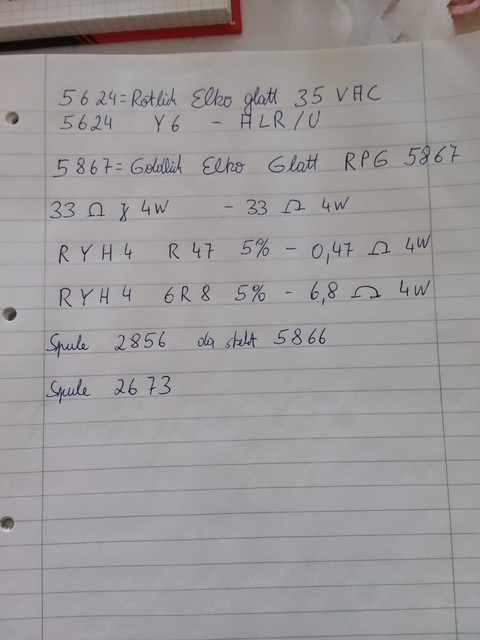 5624 = Rötlich Elko glatt 35 VAC
5624 Y6 - ALR/U
5867 = Goldlich Elko Glatt RPG 5867
33 Ω 4W - 33 Ω 4W
RYH4 R47 5% - 0,47 Ω 4W
RYH4 6R8 5% - 6,8 Ω 4W
Spule 2856 da steht 5866
Spule 2673